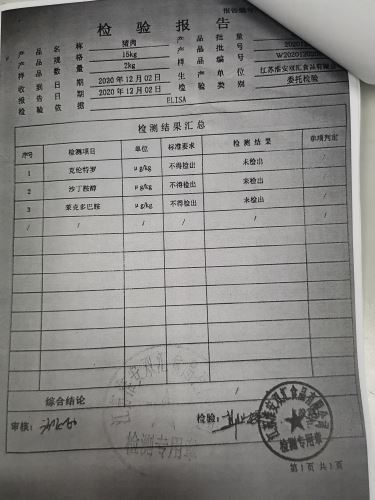 报告编号
检 验 报 告
产品名称 猪肉 产品批量
产品规格 15kg 产品批号 2020120
样品数量 2kg 样品编号 W2020120200
收到日期 2020 年 12 月 02 日 生产单位 江苏淮安双汇食品有限公
报告日期 2020 年 12 月 02 日 检验类别 委托检验
检验依据 ELISA
检测结果汇总
序号 检测项目 单位 标准要求 检测结果 单项判定
1 克伦特罗 μg/kg 不得检出 未检出
2 沙丁胺醇 μg/kg 不得检出 未检出
3 莱克多巴胺 μg/kg 不得检出 未检出
/ / / / / /
综合结论
审核: 检验:
江苏淮安双汇食品有限公司
检测专用章
江苏淮安双汇食品有限公司
检测专用章
第 1 页 共 1 页